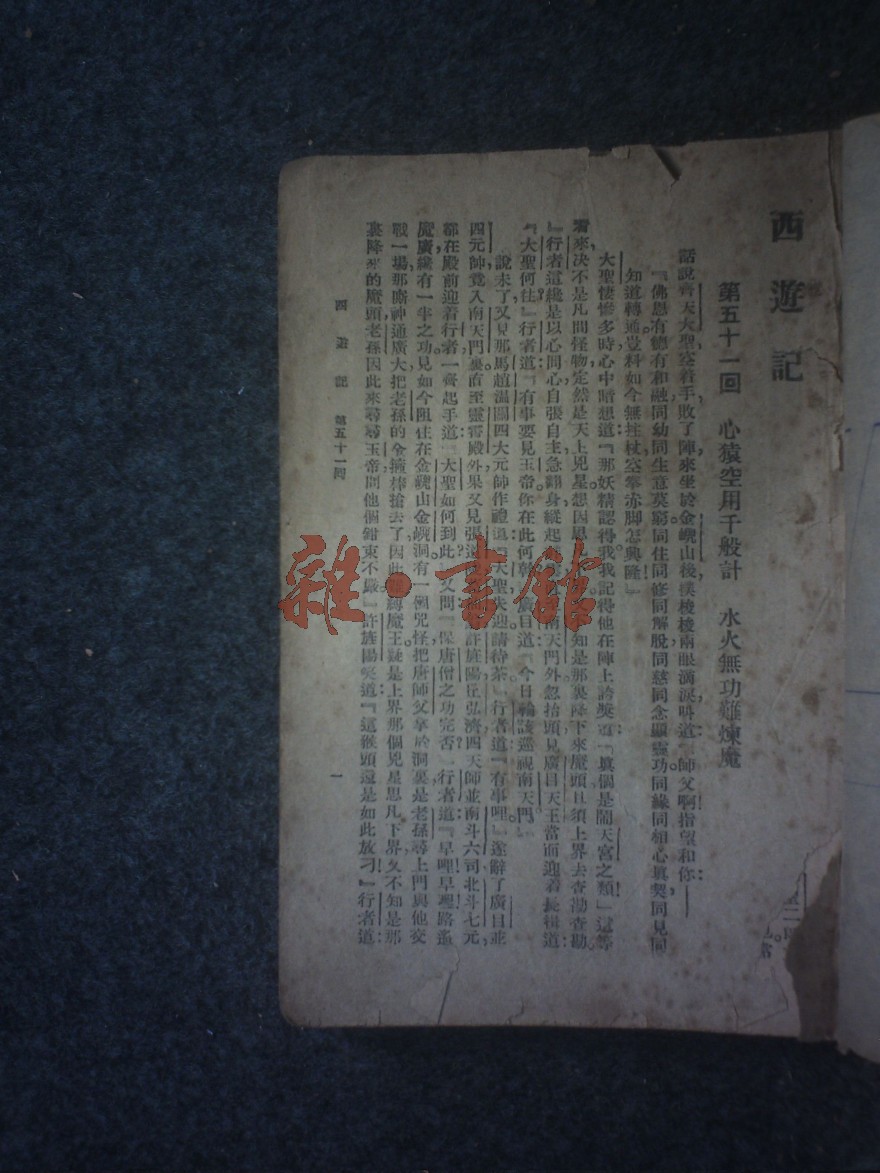 西遊記
第五十一回 心猿空用千般計 水火無功難煉魔
話說齊天大聖空着手敗了陣來坐於金㠋山後撲梭梭兩眼滴淚叫道『師父啊指望和你：
『佛恩有德有和融同幼同生意莫窮同住同修同解脫同慈同念顯靈功同緣同相心眞契同見同
知道轉通豈料如今無拄杖空拳赤脚怎興隆』
大聖悽慘多時心中暗想道『那妖精認得我我記得他在陣上誇獎道「眞個是鬧天宮之類」這等
看來決不是凡間怪物定然是天上兇星想因思 知是那裏降下來魔頭且須上界去查勘查勘
』行者這纔是以心問心自張自主急翻身縱起 南天門外忽抬頭見廣目天王當面迎着長揖道
『大聖何往』行者道『有事要見玉帝你在此何幹』廣目道『今日輪該巡視南天門』
說未了又見那馬趙溫關四大元帥作禮道『大聖失迎請待茶』行者道『有事哩』遂辭了廣目並
四元帥竟入南天門裏直至靈霄殿外果又見張道 許旌陽丘弘濟四天師並南斗六司北斗七元
都在殿前迎着行者一齊起手道『大聖如何到此』又問『保唐僧之功完否』行者道『早哩早哩路遙
魔廣纔有一半之功見如今阻住在金㠋山金㠋洞有一個兕怪把唐師父拿於洞裏是老孫尋上門與他交
戰一場那廝神通廣大把老孫的金箍棒搶去了因此 縛魔王疑是上界那個兇星思凡下界又不知是那
裏降來的魔頭老孫因此來尋尋玉帝問他個鉗束不嚴』許旌陽笑道『這猴頭還是如此放刁』行者道：
西遊記 第五十一回 一
雜·書館